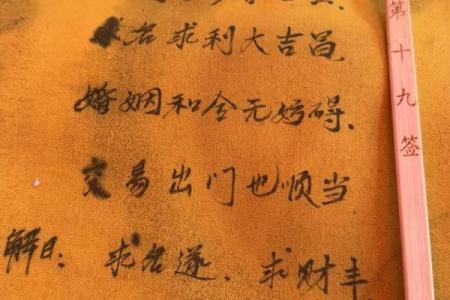 求名求利大吉昌
婚姻和合无妨碍、
交易出门也顺当
解曰：求名遂、求财丰
第十九签